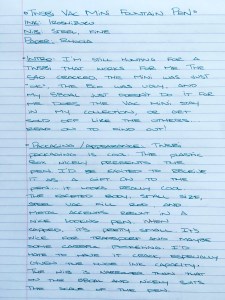 "TWSBI VAC MINI FOUNTAIN PEN"
INK:
NIB: STEEL, FINE
PAPER: RHODIA
INTRO: I'M STILL HUNTING FOR A
TWSBI THAT WORKS FOR ME. THE
580 CRACKED, THE MINI WAS JUST
"OK", THE ECO WAS UGLY, AND
MY 580AL JUST DOESN'T DO IT FOR
ME. DOES THE VAC MINI STAY
IN MY COLLECTION, OR GET
SOLD OFF LIKE THE OTHERS?
READ ON TO FIND OUT!
PACKAGING/APPEARANCE: TWSBI
PACKAGING IS COOL. THE PLASTIC
BOX NICELY PRESENTS THE
PEN. I'D BE EXCITED TO RECEIVE
IT AS A GIFT. ON TO THE
PEN, IT LOOKS REALLY COOL.
THE FACETED BODY, SMALL SIZE,
STEEL VAC FILL ROD AND
METAL ACCENTS RESULT IN A
NICE LOOKING PEN. WHEN
CAPPED, IT'S PRETTY SMALL. IT'S
NICE FOR TRANSPORT AND MAYBE
SOME CAREFUL POCKETING. I'D
HATE TO HAVE IT CRACK, ESPECIALLY
GIVEN THE HUGE INK CAPACITY.
THE NIB IS SMALLER THAN THAT
ON THE 580AL AND NICELY SUITS
THE SCALE OF THE PEN.